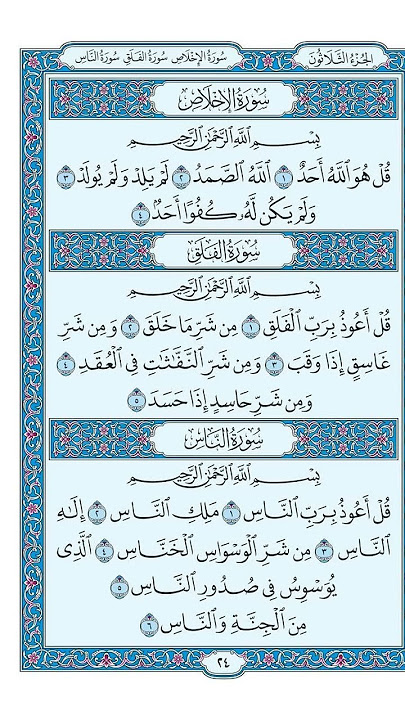 الجُزْءُ الثَّلَاثُونَ سُورَةُ الإِخْلَاصِ سُورَةُ الفَلَقِ سُورَةُ النَّاسِ
سُورَةُ الإِخْلَاصِ
بِسْمِ اللَّهِ الرَّحْمَٰنِ الرَّحِيمِ
قُلْ هُوَ ٱللَّهُ أَحَدٌ ١ ٱللَّهُ ٱلصَّمَدُ ٢ لَمْ يَلِدْ وَلَمْ يُولَدْ ٣
وَلَمْ يَكُن لَّهُۥ كُفُوًا أَحَدٌۢ ٤
سُورَةُ الفَلَقِ
بِسْمِ اللَّهِ الرَّحْمَٰنِ الرَّحِيمِ
قُلْ أَعُوذُ بِرَبِّ ٱلْفَلَقِ ١ مِن شَرِّ مَا خَلَقَ ٢ وَمِن شَرِّ
غَاسِقٍ إِذَا وَقَبَ ٣ وَمِن شَرِّ ٱلنَّفَّٰثَٰتِ فِي ٱلْعُقَدِ ٤
وَمِن شَرِّ حَاسِدٍ إِذَا حَسَدَ ٥
سُورَةُ النَّاسِ
بِسْمِ اللَّهِ الرَّحْمَٰنِ الرَّحِيمِ
قُلْ أَعُوذُ بِرَبِّ ٱلنَّاسِ ١ مَلِكِ ٱلنَّاسِ ٢ إِلَٰهِ
ٱلنَّاسِ ٣ مِن شَرِّ ٱلْوَسْوَاسِ ٱلْخَنَّاسِ ٤ ٱلَّذِى
يُوَسْوِسُ فِى صُدُورِ ٱلنَّاسِ ٥
مِنَ ٱلْجِنَّةِ وَٱلنَّاسِ ٦
٢٤